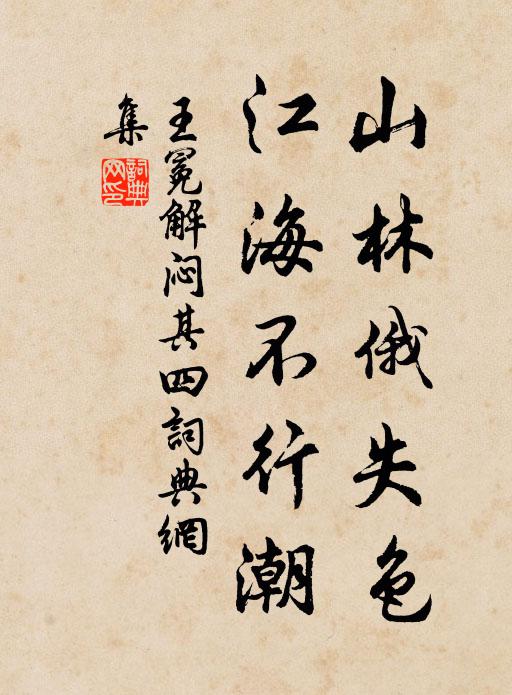 山林俄失色
江海不行潮
王冕解闷其四詞典網
集
詞典
网印